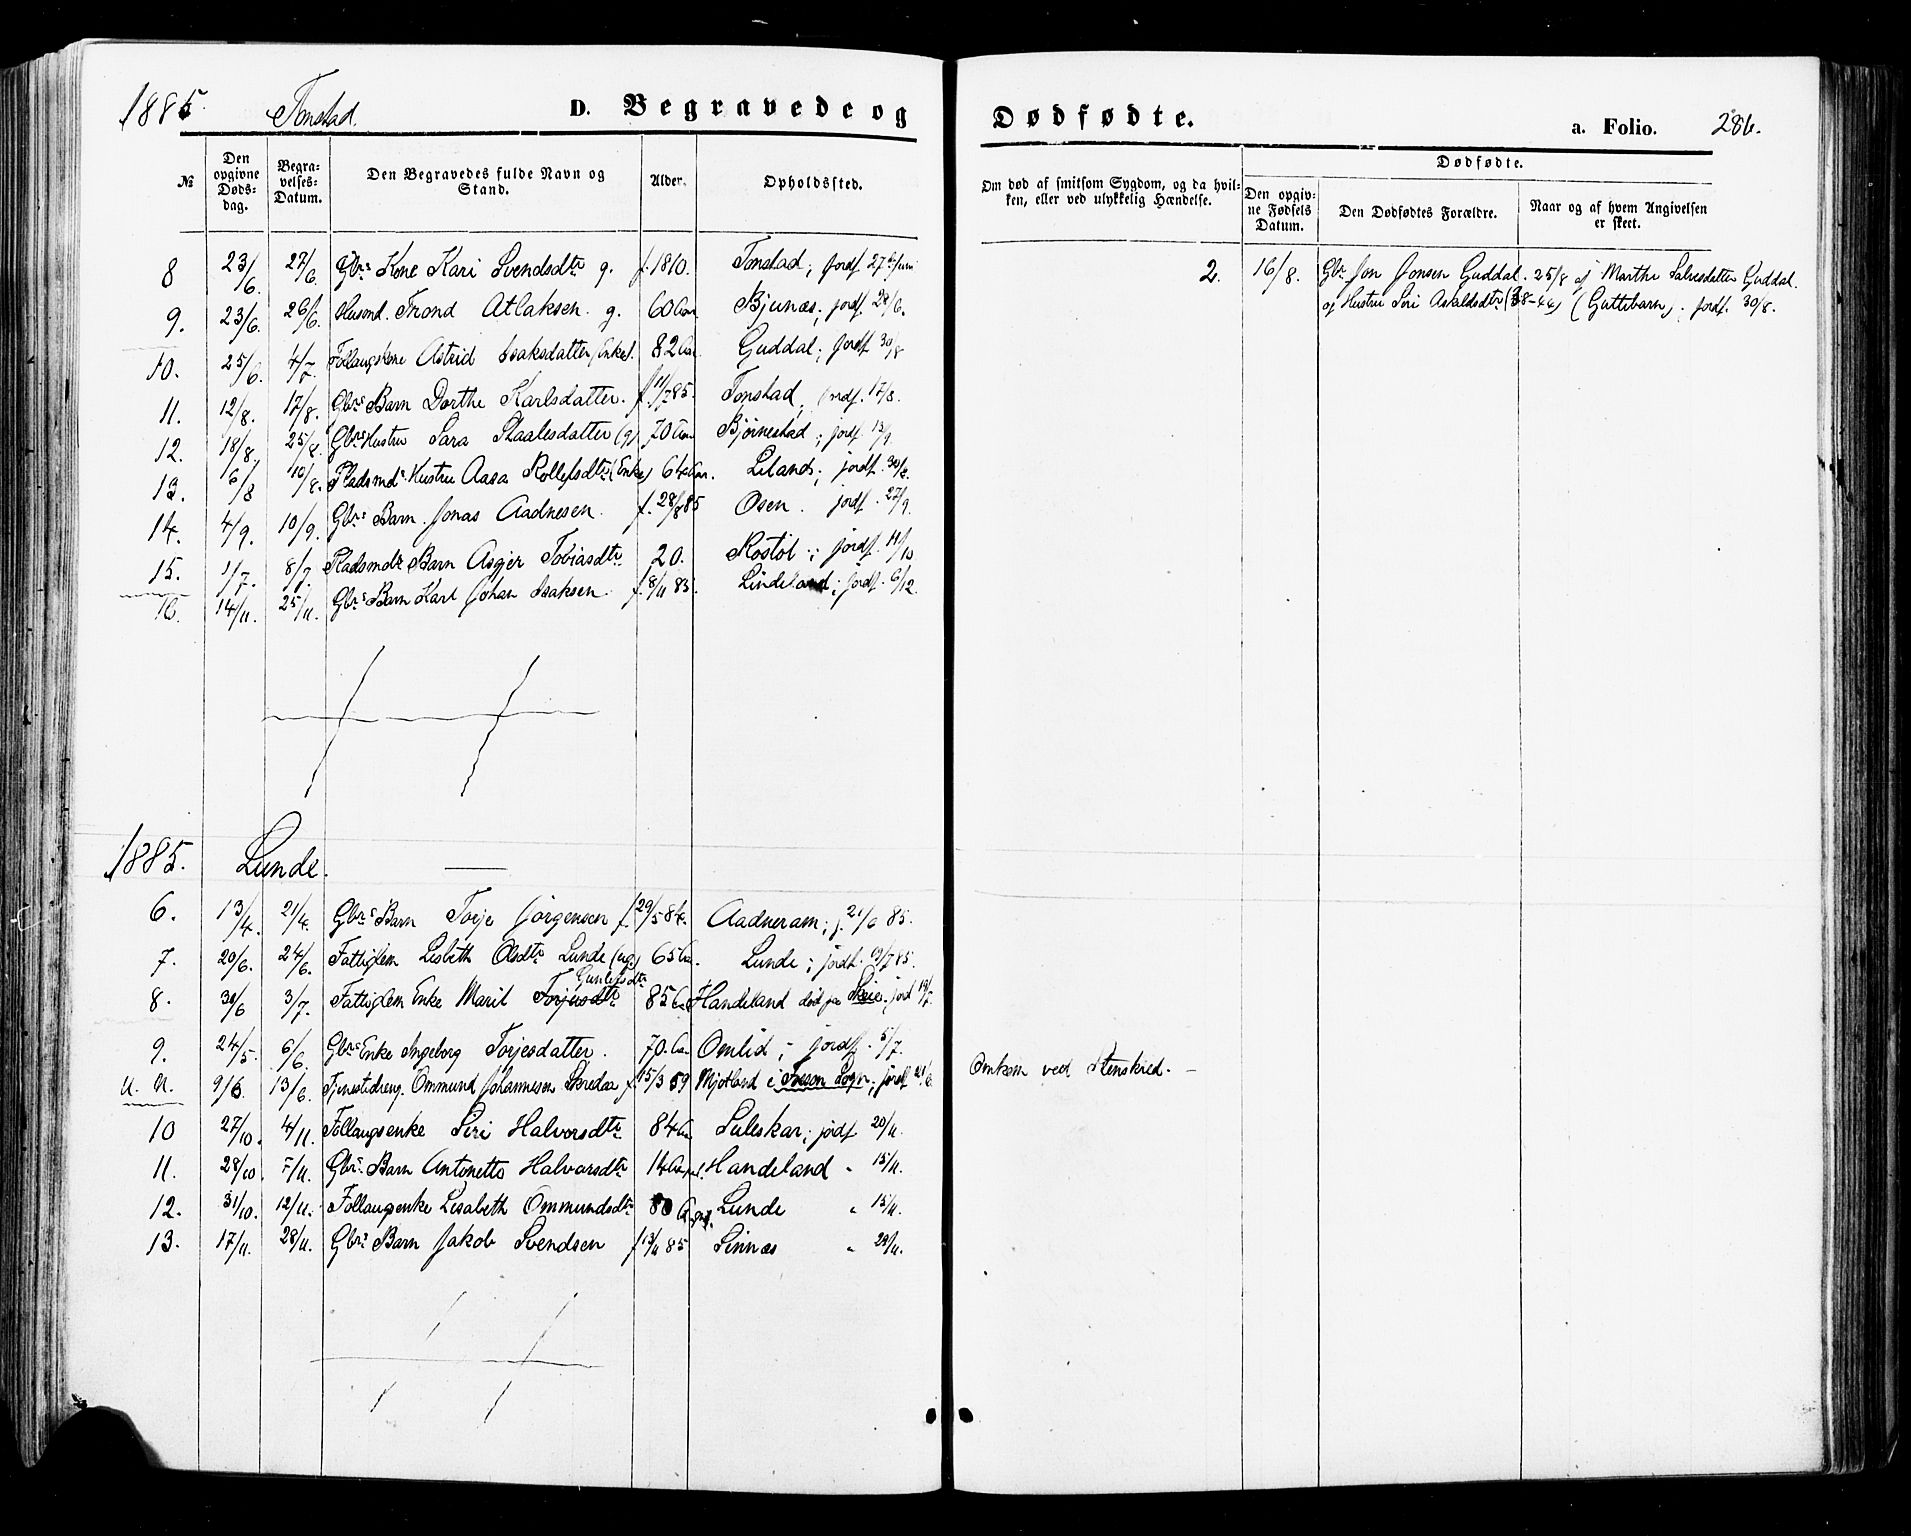 1885. Tonstad. D. Begravede og Dødfødte. a. Folio. 286.
№ Den opgivne Døds-dag. Begra-velses-Datum. Den Begravedes fulde Navn og Stand. Alder. Opholdssted. Om død af smitsom Sygdom, og da hvil-ken, eller ved ulykkelig Hændelse. Dødfødte.
Den opgiv-ne Fødsels Datum. Den Dødfødtes Forældre. Naar og af hvem Angivelsen er skeet.
8 23/6. 27/6. Gbrs Kone Kari Svendsdtr g. f. 1810. Tonstad; jordf. 27 2. 16/8. Gbr. Jon Jonsen Guddal. 25/8 af Marthe Salvesdatter Guddal.
og Hustru Siri Asvaldsdtr (38-44) (Guttebarn). jordf. 30/8.
9. 23/6. 26/6. Husmd. Trond Atlaksen. g. 60 Aar Bjunæs; jordf. 28/6.
10. 25/6. 4/7. Follaugskone Astrid Isaksdatter (Enke). 82 Aar. Guddal; jordf 30/8
11. 12/8. 17/8. Gbrs Barn Dorthe Karlsdatter. f. 11/7 85. Tonstad, jordf. 17/8.
12. 18/8. 25/8. Gbrs Hustru Sara Staalesdatter (g) 70 Aar Bjørnestad; jordf. 13/9.
13. 16/8 10/8. Pladsmds Hustru Aasa Rollefsdtr (Enke) 64 Aar. Liland; jordf. 30/8.
14. 4/9. 10/9. Gbrs Barn. Jonas Aadnesen. f. 28/8 85 Osen. jordf. 27/9.
15. 1/7. 8/7. Pladsmds Barn Asgjer Tobiasdtr 20. Rostøl; jordf. 11/10
16. 14/11. 25/11. Gbrs Barn Karl Johan Isaksen. f. 8/11 85. Lindeland; jordf. 6/12.
1885. Lunde.
6. 13/4. 21/4. Gbrs Barn Torje Jørgensen f. 29/5 84. Aadneram; j. 21/6 85.
7. 20/6. 24/6. Fattiglem Lisbeth Olsdtr Lunde (ug) 65 Aar. Lunde; jordf. 19/7 85.
Gunlefsdtr
8. 30/6 3/7. Fattiglem Enke Marit Torjusdtr 85 Aar Handeland død paa Skeie. jord 19/7.
9. 24/5. 6/6. Gbrs Enke Ingeborg Torjesdatter. 70. Aar Omlid; jordf. 5/7.
U. N. 9/6. 13/6. Tjenestedreng. Ommund Johannesen Skredaa f. 15/3 69 Mjotland i Sogn; jordf 21/6 Omkom ved Stenskred. —
10 27/10. 4/11. Follaugsenke Siri Halvorsdtr 84 Aar Suleskar; jordf 20/11.
11. 28/10. 5/11. Gbrs. Barn Antonette Halvorsdtr 14 Handeland " 15/11.
12. 31/10. 12/11. Follaugsenke Lisabeth Ommundsdtr 80 Lunde " 15/11.
13. 17/11. 28/11. Gbrs Barn Jakob Svendsen f. 13/11 85 Sinnæs " 29/11.